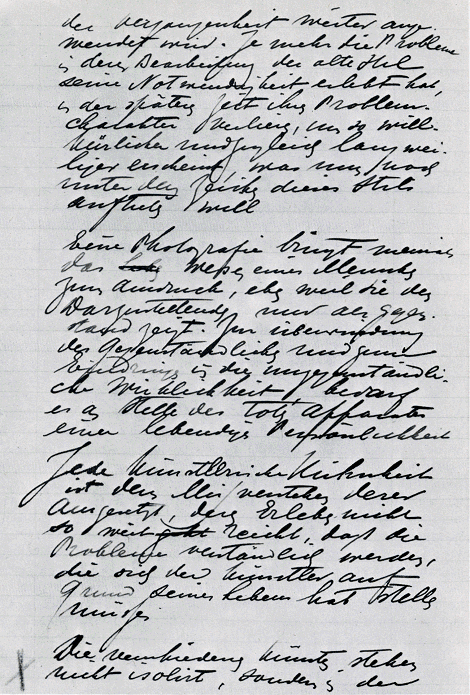 der Vergangenheit weiter ange-
wendet wird. Je mehr die Probleme
in deren Bearbeitung der alte Stil
seine Notwendigkeit erlebt hat,
in der späteren Zeit ihren Problem-
charakter verlieren, um so will-
kürlicher und zugleich langwei-
liger erscheint, was nun noch
unter dem Zeichen dieses Stils
auftreten will

Eine Photografie bringt niemals
das Wesen eines Menschen
zum Ausdruck, eben weil die den
Darzustellenden nur als Gegen-
stand zeigt. Zur Überwindung
des Gegenständlichen und zum
in die ungegenständli-
che Wirklichkeit bedarf
es an Stelle des toten Apparates
einer lebendigen Persönlichkeit

Jede künstlerische Kühnheit
ist dem Missverstehen derer
ausgesetzt, deren Erleben nicht
so weit reicht, daß die
Probleme verständlich werden,
die sich der Künstler auf
Grund seines Lebens hat stellen
müssen

Die verschiedenen Künste stehen
nicht isoliert, sondern in der